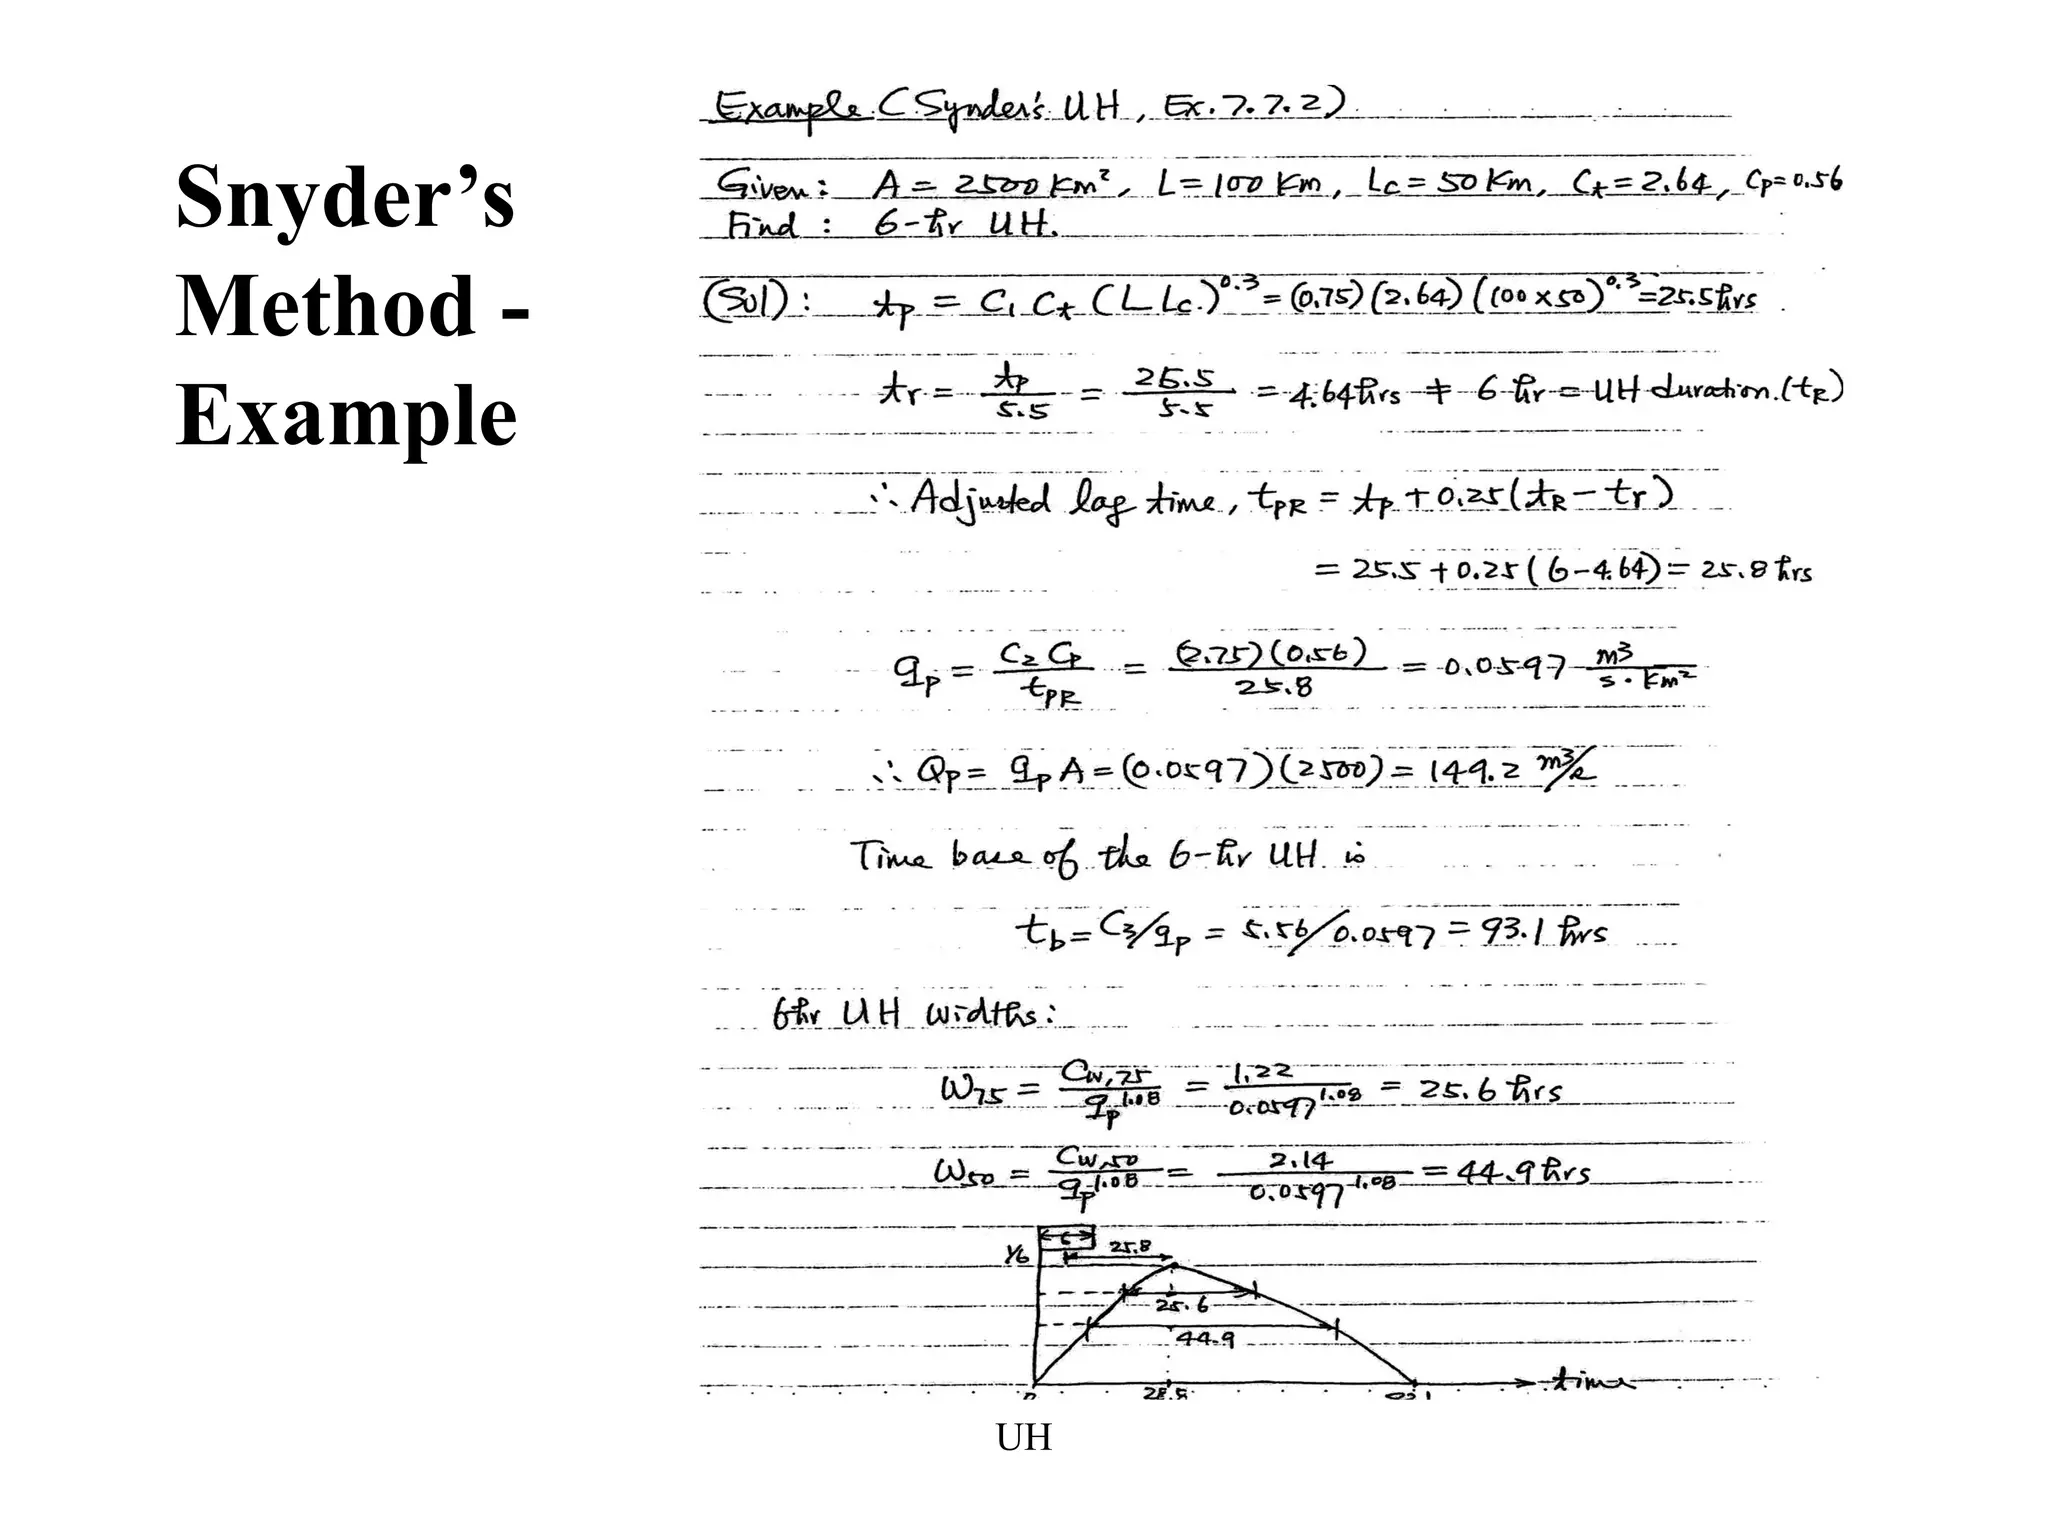 Snyder's
Method -
Example
Example (Synder's UH, Ex. 7.7.2)
Given: A = 2500 Km², L = 100 Km, Lc = 50 Km, Ct = 2.64, Cp = 0.56
Find : 6-hr UH.
(Sol): tp = C₁ Ct (L Lc)^0.3 = (0.75)(2.64)(100 x 50)^0.3 = 25.5 hrs
tr = tp/5.5 = 25.5/5.5 = 4.64 hrs ≠ 6 hr = UH duration (tR)
∴ Adjusted lag time, tPR = tp + 0.25(tR - tr)
= 25.5 + 0.25 (6 - 4.64) = 25.8 hrs
qp = C₂ Cp/tPR = (2.75)(0.56)/25.8 = 0.0597 m³/s·Km²
∴ Qp = qp A = (0.0597)(2500) = 149.2 m³/s
Time base of the 6-hr UH is
tb = C₃/qp = 5.56/0.0597 = 93.1 hrs
6hr UH widths:
W75 = Cw,75/qp^1.08 = 1.22/0.0597^1.08 = 25.6 hrs
W50 = Cw,50/qp^1.08 = 2.14/0.0597^1.08 = 44.9 hrs
6
1/6
25.8
25.6
44.9
0 28.8 93.1 time
UH